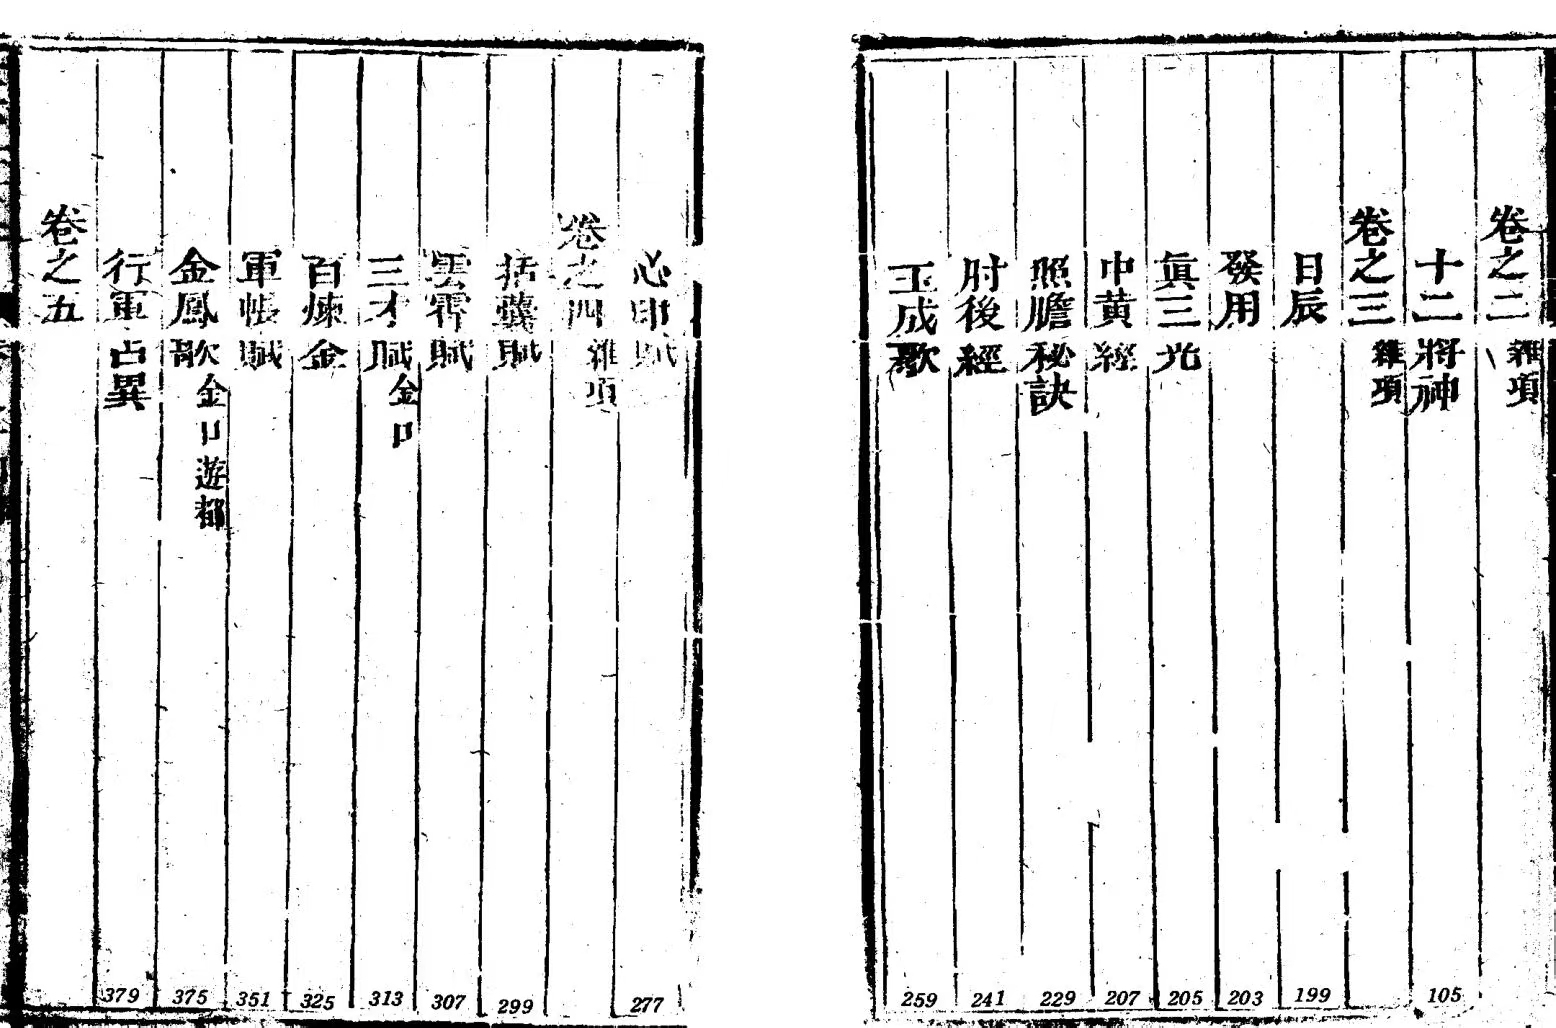 卷之二 雜項
十二將神 105
卷之三 雜項
日辰 199
發用 203
眞三光 205
中黄經 207
照膽秘訣 229
肘後經 241
玉成歌 259
心印賦 277
卷之四 雜項
括囊賦 299
雲霄賦 307
三才賦 金口 313
百煉金 325
軍帳賦 351
金鳳歌 金口遊都 375
行軍占異 379
卷之五